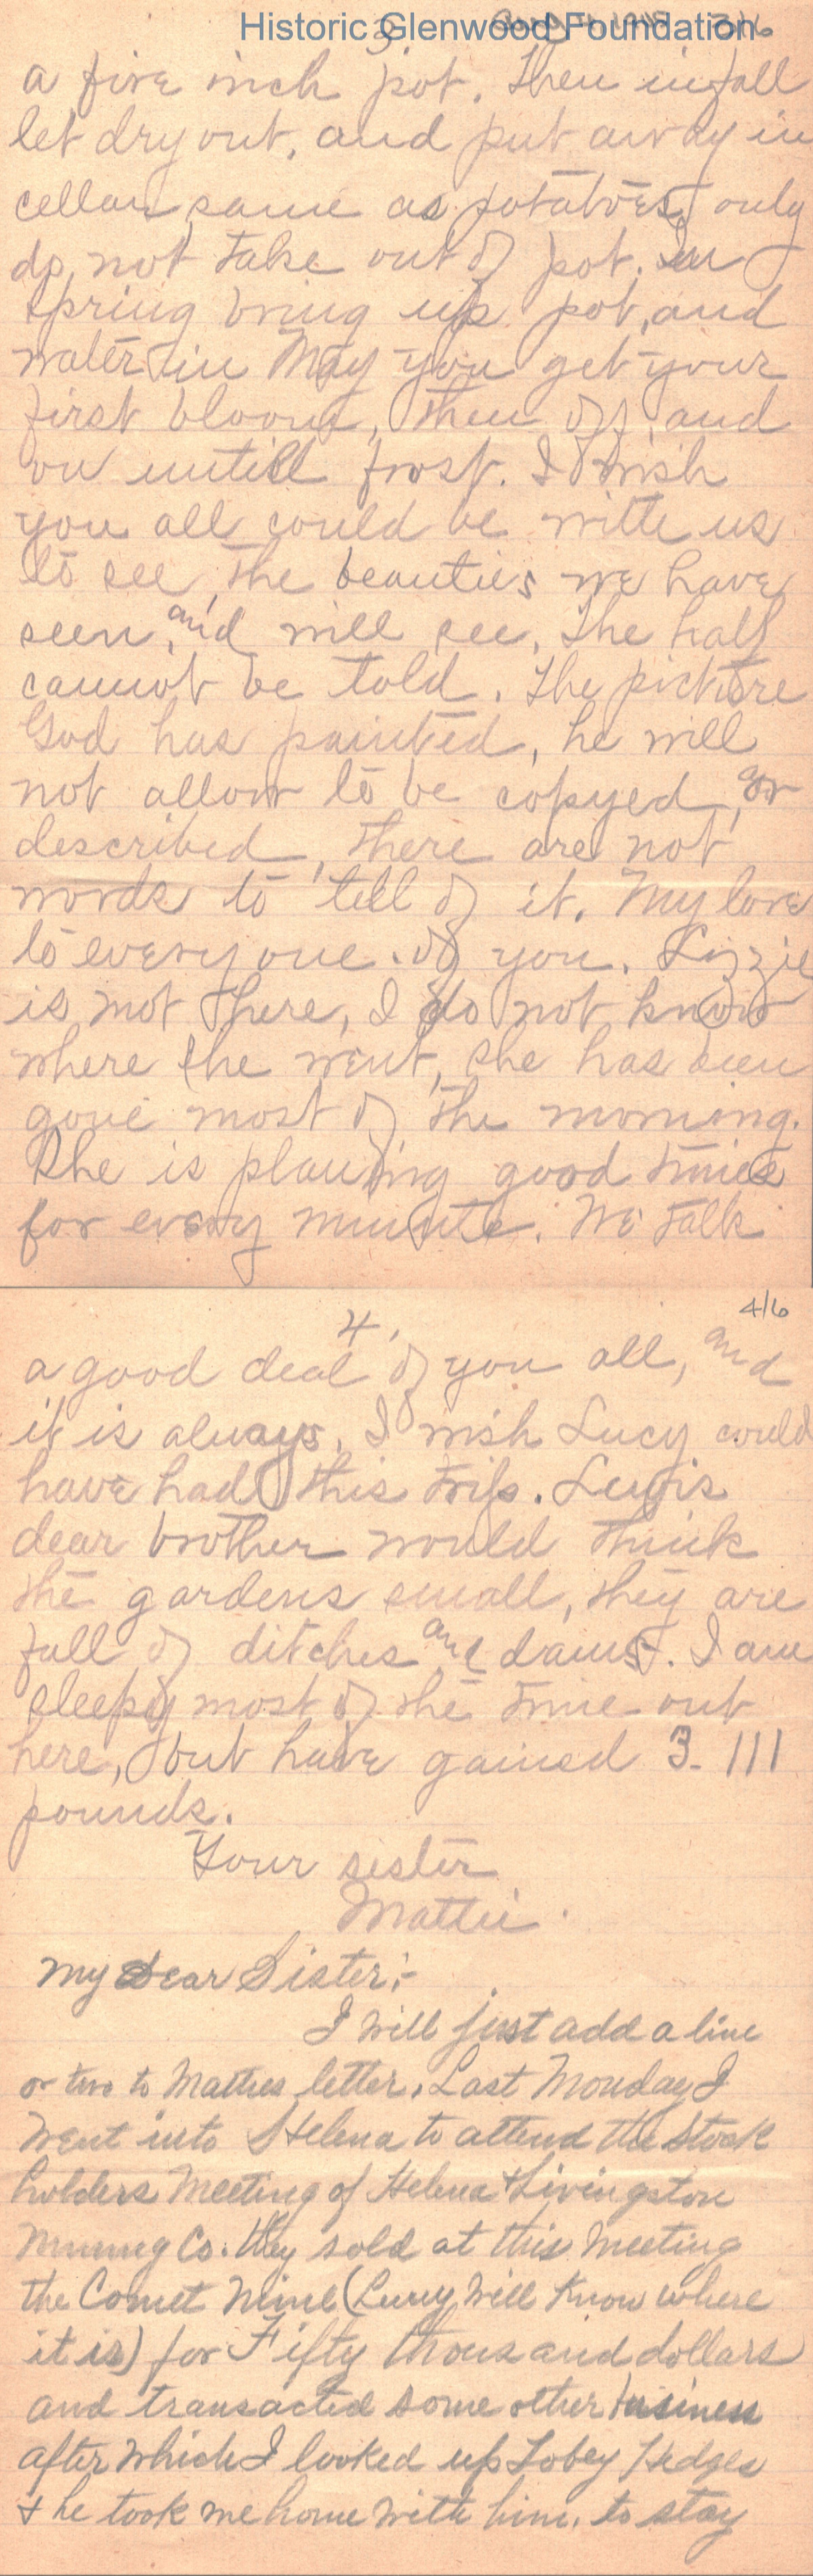 Historic Glenwood Foundation
1915 3/6
3
a five inch pot. Then in fall
let dry out, and put away in
cellar same as potatoes, only
do not take out of pot. In
spring bring up pot, and
water in May you get your
first bloom, then off and
on untill frost. I wish
you all could be with us
to see the beauties we have
seen, and will see. The half
cannot be told. The picture
God has painted, he will
not allow to be copyed, or
described, there are not
words to tell of it. My love
to every one of you. Lizzie
is not here, I do not know
where she went, she has been
gone most of the morning.
She is planing good times
for every minute. We talk
4/6
4.
a good deal of you all, and
it is always, I wish Lucy could
have had this trip. Lewis
dear brother would think
the gardens small, they are
full of ditches and dams. I am
sleepy most of the time out
here, but have gained 3. 111
pounds.
Your sister
Mattie.
My Dear Sister:-
I will just add a line
or two to Matties letter. Last Monday I
went into Helena to attend the Stock
holders Meeting of Helena & Livingston
Mining Co. they sold at this Meeting
the Comet Mine (Lucy will know where
it is) for Fifty thousand dollars
and transacted some other business
after which I looked up Tobey Hedges
& he took me home with him, to stay